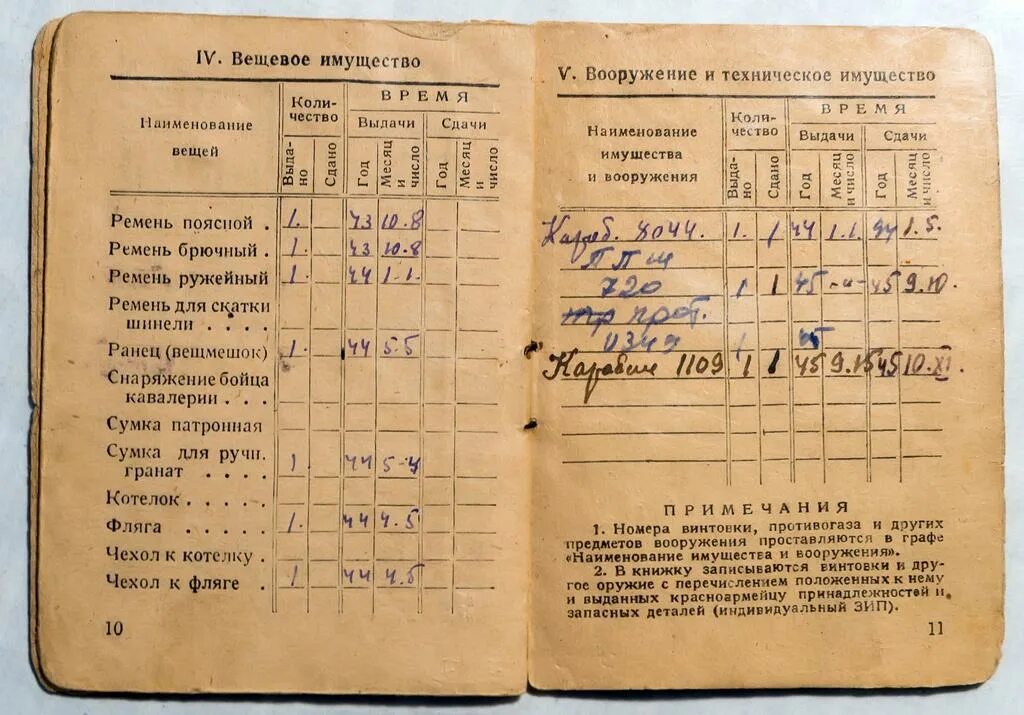 IV. Вещевое имущество
Наименование вещей
Коли-
чество
ВРЕМЯ
Выдачи
Сдачи
Выда-
но
Сдано
Год
Месяц
и
число
Год
Месяц
и
число
Ремень поясной . 1. 43 10.8
Ремень брючный . 1. 43 10.8
Ремень ружейный 1. 44 1.1.
Ремень для скатки
шинели . . . .
Ранец (вещмешок) 1. 44 5.5
Снаряжение бойца
кавалерии . . .
Сумка патронная
Сумка для ручн.
гранат . . . . 1 44
Котелок . . . . .
Фляга . . . . . 1. 44 4.5
Чехол к котелку .
Чехол к фляге . 1 44 4.5
10
V. Вооружение и техническое имущество
Наименование
имущества
и вооружения
Коли-
чество
ВРЕМЯ
Выдачи
Сдачи
Выда-
но
Сдано
Год
Месяц
и число
Год
Месяц
и число
Караб. 8044. 1. 1 44 1.1. 1.5.
ППш
720 1 1 45 -"- 45 9.10.
прот.
0349 1 45
Карабин 1109 1 1 45 9.15 45 10.XI.
ПРИМЕЧАНИЯ
1. Номера винтовки, противогаза и других
предметов вооружения проставляются в графе
«Наименование имущества и вооружения».
2. В книжку записываются винтовки и дру-
гое оружие с перечислением положенных к нему
и выданных красноармейцу принадлежностей и
запасных деталей (индивидуальный ЗИП).
11